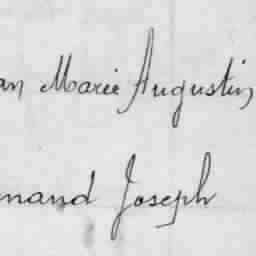 an Marie Augustin,
mand Joseph